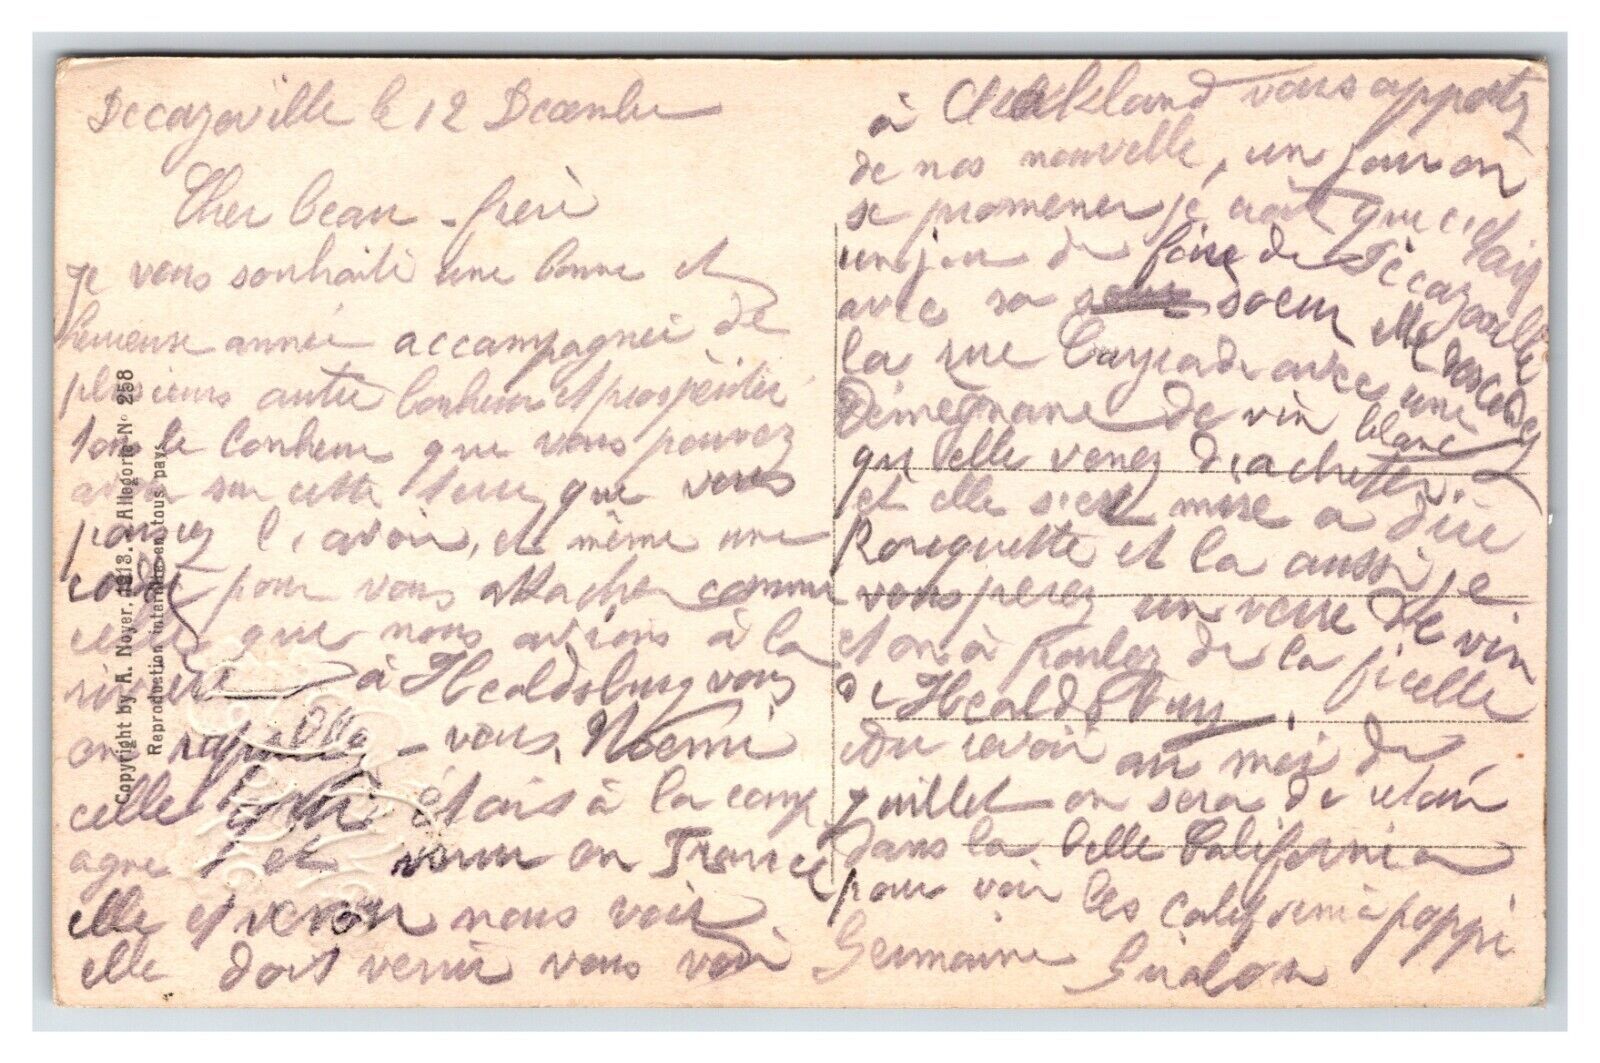 Decazeville le 12 Decembre
Cher beau-frere
je vous souhaite une bonne et
heureuse année accompagnée de
plusieurs autre bonheur et prospéritée
tout le bonheur que vous pouvez
avoir sur cette terre que vous
puissiez l'avoir, et même une
pour vous attacher comme
celle que nous avions à la
riviere à Healdsburg vous
rapellez-vous, Noemi
celle qui étais à la camp
agne et venu en France
elle et venu nous voir
elle doit venir vous voir
à Oakland vous apportez
de nos nouvelle, un jour on
se promener je crois que c'etais
un jour de foire de Decazeville
avec sa soeur elle
la rue Cayrade avec une
Demegnane de vin blanc
qu'elle venez d'acheter.
et elle s'est mise a dire
Rouquette et la aussi, e
vous perez un verre de vin
et on à parlez de la ficelle
de Healdsburg,
Au revoir au moi de
juillet on sera de retour
dans la belle California
pour voir les california poppi
Germaine
Copyright by A. Noyer, 1913. Allegorie No 258
Reproduction interdite en tous pays